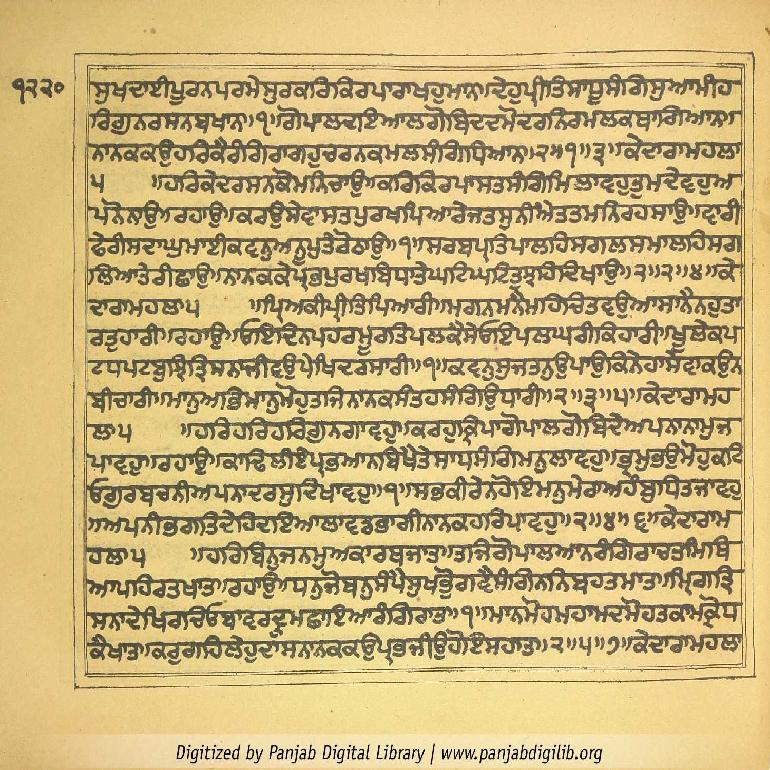 ੧੨੨੦
ਸੁਖਦਾਈਪੂਰਨਪਰਮੇਸੁਰਕਰਿਕਿਰਪਾਰਾਖਹੁਮਾਨ॥ਦੇਹੁਪ੍ਰੀਤਿਸਾਧੂਸੰਗਿਸੁਆਮੀਹ
ਰਿਗੁਨਰਸਨਬਖਾਨ॥੧॥ਗੋਪਾਲਦਇਆਲਗੋਬਿਦਦਮੋਦਰਨਿਰਮਲਕਥਾਗਿਆਨ॥
ਨਾਨਕਕਉਹਰਿਕੈਰੰਗਿਰਾਗਹੁਚਰਨਕਮਲਸੰਗਿਧਿਆਨ॥੨॥੧॥੩॥ਕੇਦਾਰਾਮਹਲਾ
੫ ॥ਹਰਿਕੇਦਰਸਨਕੋਮਨਿਚਾਉ॥ਕਰਿਕਿਰਪਾਸਤਸੰਗਿਮਿਲਾਵਹੁਤੁਮਦੇਵਹੁਅ
ਪਨੋਨਾਉ॥ਰਹਾਉ॥ਕਰਉਸੇਵਾਸਤਪੁਰਖਪਿਆਰੇਜਤਸੁਨੀਐਤਤਮਨਿਰਹਸਾਉ॥ਵਾਰੀ
ਫੇਰੀਸਦਾਘੁਮਾਈਕਵਨੁਅਨੂਪੁਤੇਰੋਠਾਉ॥੧॥ਸਰਬਪ੍ਰਤਿਪਾਲਹਿਸਗਲਸਮਾਲਹਿਸਗ
ਲਿਆਤੇਰੀਛਾਉ॥ਨਾਨਕਕੇਪ੍ਰਭਪੁਰਖਬਿਧਾਤੇਘਟਿਘਟਿਤੁਝਹਿਦਿਖਾਉ॥੨॥੨॥੪॥ਕੇ
ਦਾਰਾਮਹਲਾ੫ ॥ਪ੍ਰਿਅਕੀਪ੍ਰੀਤਿਪਿਆਰੀ॥ਮਗਨਮਨੈਮਹਿਚਿਤਵਉਆਸਾਨੈਨਹੁਤਾ
ਰਤੁਹਾਰੀ॥ਰਹਾਉ॥ਓਇਦਿਨਪਹਰਮੂਰਤਿਪਲਕੈਸੇਓਇਪਲਘਰੀਕਿਹਾਰੀ॥ਖੂਲੇਕਪ
ਟਧਪਟਬੁਝਿਤ੍ਰਿਸਨਾਜੀਵਉਪੇਖਿਦਰਸਾਰੀ॥੧॥ਕਵਨੁਸੁਜਤਨੁਉਪਾਉਕਿਨੇਹਾਸੇਵਾਕਉਨ
ਬੀਚਾਰੀ॥ਮਾਨੁਅਭਿਮਾਨੁਮੋਹੁਤਜਿਨਾਨਕਸੰਤਹਸੰਗਿਉਧਾਰੀ॥੨॥੩॥੫॥ਕੇਦਾਰਾਮਹ
ਲਾ੫ ॥ਹਰਿਹਰਿਹਰਿਗੁਨਗਾਵਹੁ॥ਕਰਹੁਕ੍ਰਿਪਾਗੋਪਾਲਗੋਬਿਦੇਅਪਨਾਨਾਮੁਜ
ਪਾਵਹੁ॥ਰਹਾਉ॥ਕਾਢਿਲੀਏਪ੍ਰਭਆਨਬਿਖੈਤੇਸਾਧਸੰਗਿਮਨੁਲਾਵਹੁ॥ਭ੍ਰਮੁਭਉਮੋਹੁਕਟਿ
ਓਗੁਰਬਚਨੀਅਪਨਾਦਰਸੁਦਿਖਾਵਹੁ॥੧॥ਸਭਕੀਰੇਨਹੋਇਮਨੁਮੇਰਾਅਹੰਬੁਧਿਤਜਾਵਹੁ
॥ਅਪਨੀਭਗਤਿਦੇਹਿਦਇਆਲਾਵਡਭਾਗੀਨਾਨਕਹਰਿਪਾਵਹੁ॥੨॥੪॥੬॥ਕੇਦਾਰਾਮ
ਹਲਾ੫ ॥ਹਰਿਬਿਨੁਜਨਮੁਅਕਾਰਥਜਾਤ॥ਤਜਿਗੋਪਾਲਆਨਰੰਗਿਰਾਚਤਮਿਥਿ
ਆਪਹਿਰਤਖਾਤ॥ਰਹਾਉ॥ਧਨੁਜੋਬਨੁਸੰਪੈਸੁਖਭੋੁਗਵੈਸੰਗਿਨਨਿਬਹਤਮਾਤ॥ਮ੍ਰਿਗਤ੍ਰਿ
ਸਨਾਦੇਖਿਰਚਿਓਬਾਵਰਦ੍ਰੁਮਛਾਇਆਰੰਗਿਰਾਤ॥੧॥ਮਾਨਮੋਹਮਹਾਮਦਮੋਹਤਕਾਮਕ੍ਰੋਧ
ਕੈਖਾਤ॥ਕਰੁਗਹਿਲੇਹੁਦਾਸਨਾਨਕਕਉਪ੍ਰਭਜੀਉਹੋਇਸਹਾਤ॥੨॥੫॥੭॥ਕੇਦਾਰਾਮਹਲਾ
Digitized by Panjab Digital Library | www.panjabdigilib.org